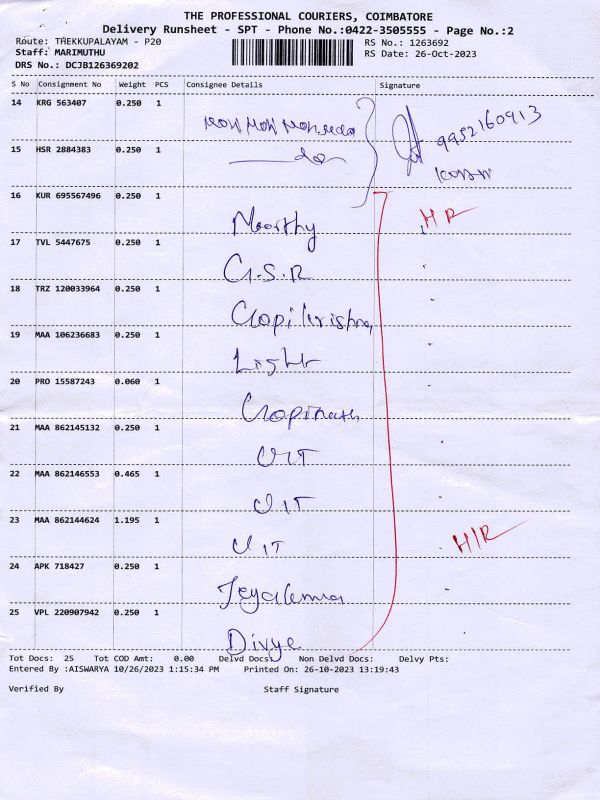 THE PROFESSIONAL COURIERS, COIMBATORE
Delivery Runsheet - SPT - Phone No.:0422-3505555 - Page No.:2
Route: THEKKUPALAYAM - P20
RS No.: 1263692
Staff: MARIMUTHU
RS Date: 26-Oct-2023
DRS No.: DCJB126369202
S No Consignment No Weight PCS Consignee Details Signature
14 KRG 563407 0.250 1
9952160913
15 HSR 2884383 0.250 1
16 KUR 695567496 0.250 1
Moorthy H R
17 TVL 5447675 0.250 1
G.S.R
18 TRZ 120033964 0.250 1
Gopikrishna
19 MAA 106236683 0.250 1
Light
20 PRO 15587243 0.060 1
Gopinath
21 MAA 862145132 0.250 1
UIT
22 MAA 862146553 0.465 1
UIT
23 MAA 862144624 1.195 1
UIT H/R
24 APK 718427 0.250 1
25 VPL 220907942 0.250 1
Divya
Tot Docs: 25 Tot COD Amt: 0.00 Delvd Docs: Non Delvd Docs: Delvy Pts:
Entered By :AISWARYA 10/26/2023 1:15:34 PM Printed On: 26-10-2023 13:19:43
Verified By Staff Signature